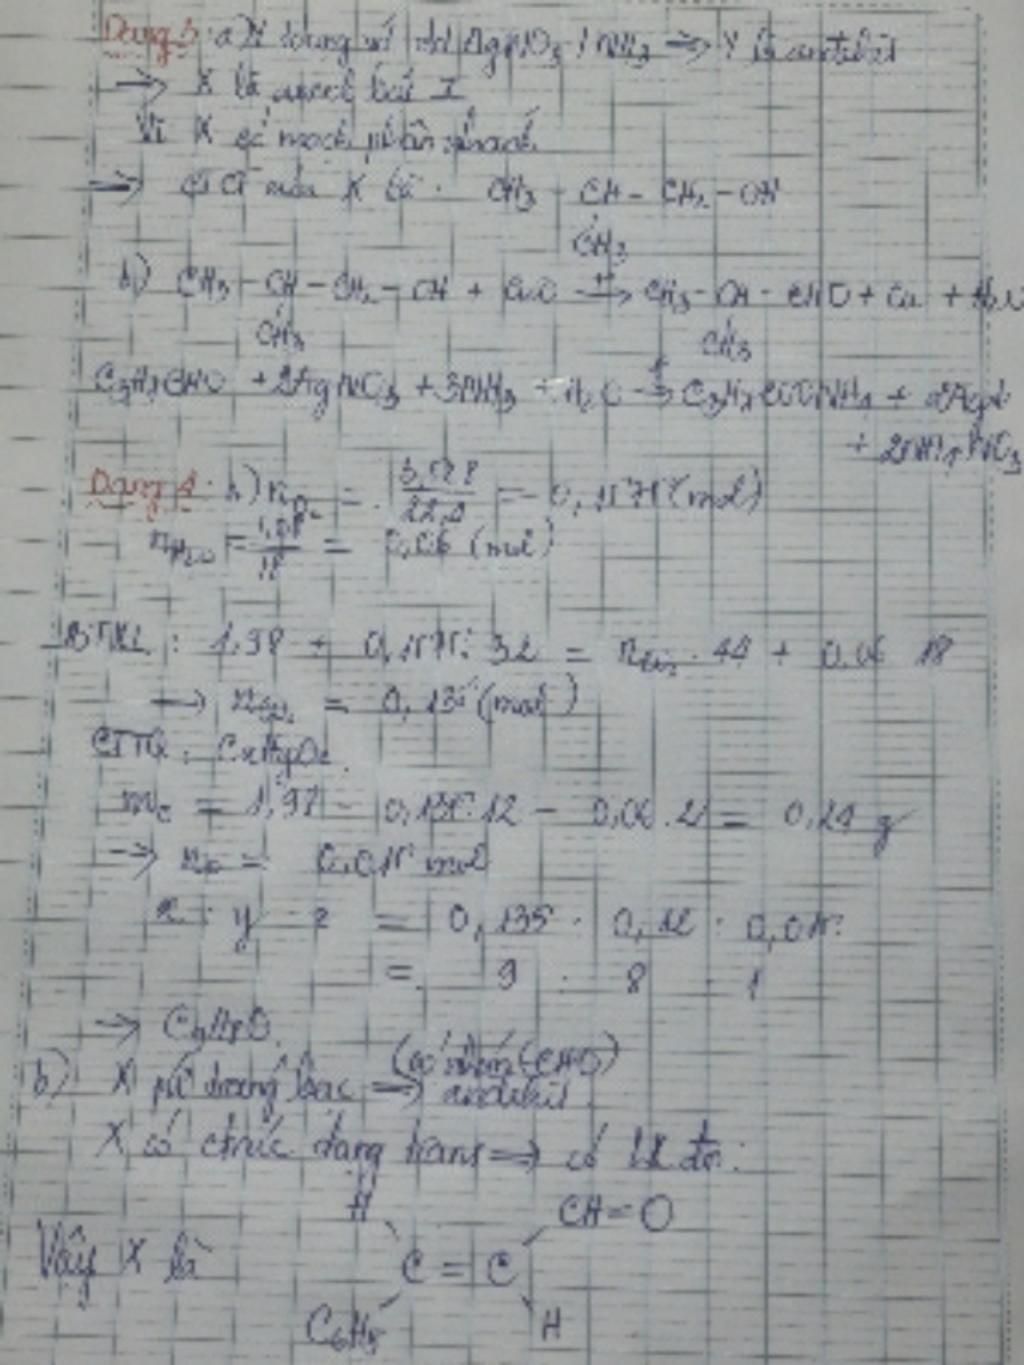 Dạng 3: a) Y tác dụng với dd AgNO3/NH3 => Y là anđehit
=> X là ancol bậc I
Vì X có mạch phân nhánh
=> CTCT của X là: CH3 - CH - CH2 - OH
CH3
b) CH3 - CH - CH2 - OH + CuO -t-> CH3 - CH - CHO + Cu + H2O
CH3 CH3
C3H7CHO + 2AgNO3 + 3NH3 + H2O -t-> C3H7COONH4 + 2Ag↓
+ 2NH4NO3
Dạng 4: nO2 = 3,528/22,4 = 0,1575 (mol)
nH2O = 1,08/18 = 0,06 (mol)
BTKL: 1,98 + 0,1575. 32 = nCO2 . 44 + 0,06 18
-> nCO2 = 0,135 (mol)
CTTQ: CxHyOz
= 1,98 - 0,135.12 - 0,06.2 = 0,24 g
-> nO = 0,015 mol
x : y z = 0,135 : 0,12 : 0,015
= 9 : 8 1
-> C9H8O.
(có nhóm (CHO)
b) X pứ tráng bạc => anđehit.
X có dạng trans => có lk đôi
H CH=O
Vậy X là C = C
C6H5 H